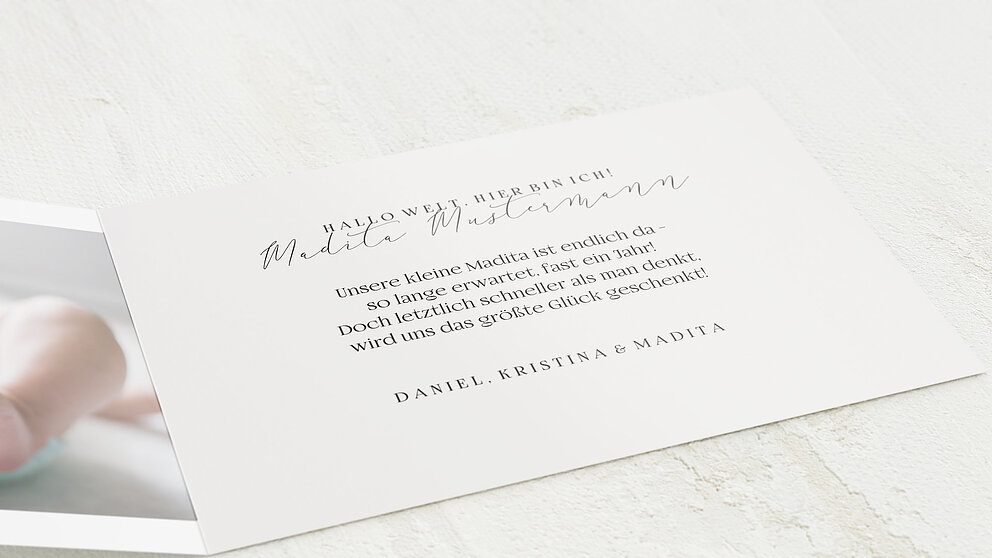 HALLO WELT, HIER BIN ICH!
Madita Mustermann
Unsere kleine Madita ist endlich da –
so lange erwartet, fast ein Jahr!
Doch letztlich schneller als man denkt,
wird uns das größte Glück geschenkt!
DANIEL, KRISTINA & MADITA